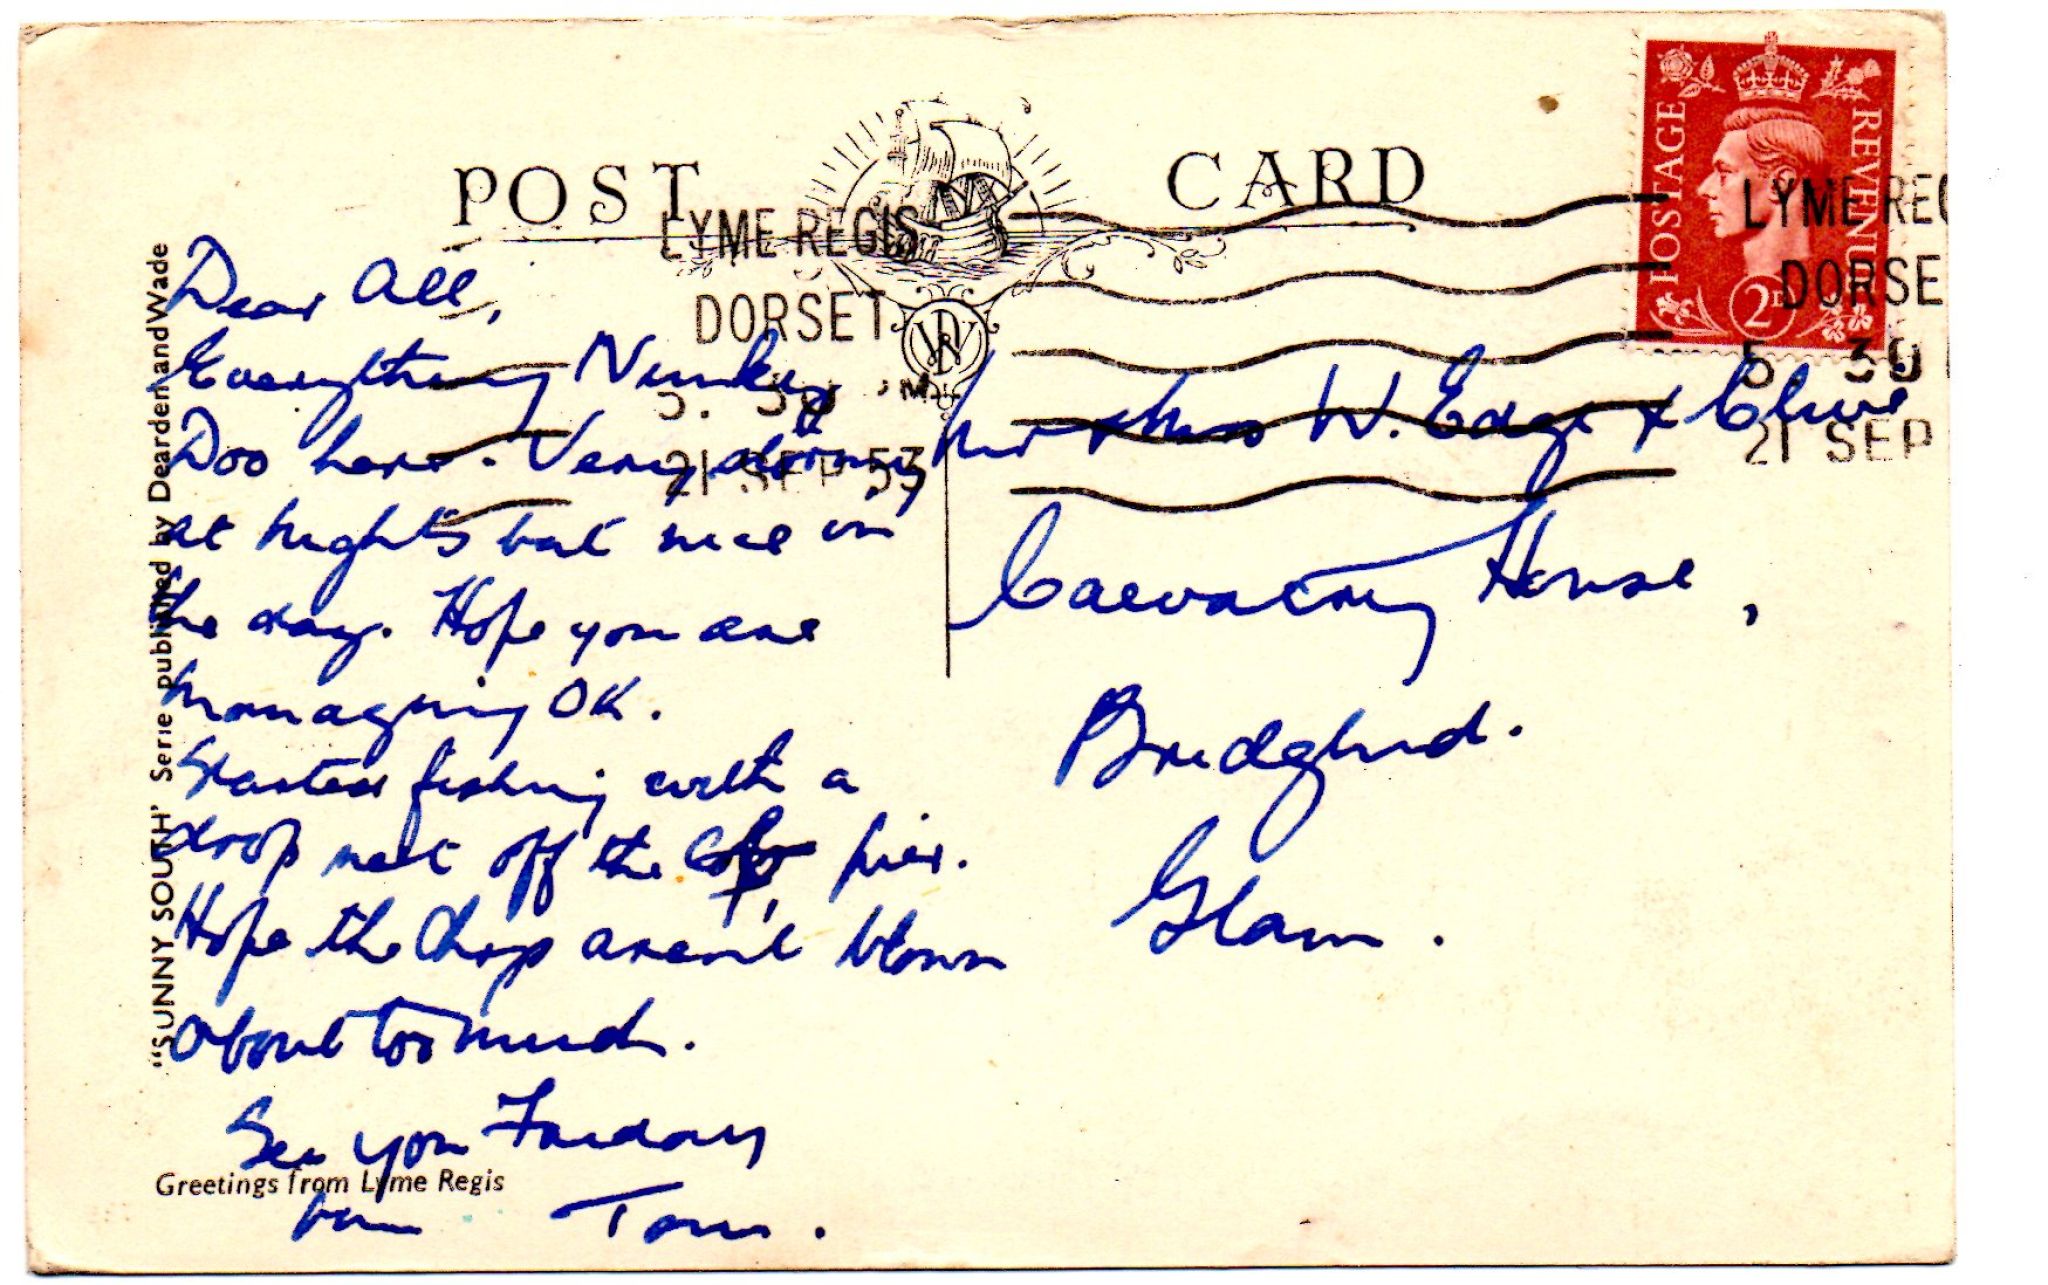 POST CARD
POSTAGE REVENUE
2D
LYME REGIS
DORSET
5. 30 PM
21 SEP 53
LYME REG
DORSE
5 30
21 SEP
Dear All,
Everything Hunky
Doo here. Very stormy
at nights but nice in
the day. Hope you are
managing OK.
Started fishing with a
drop net off the pier.
Hope the Chaps aren't blown
about too much.
See you Friday
Tom.
Mr & Mrs W. Edge & Clive
House,
Bridgend.
Glam.
"SUNNY SOUTH' Serie published by Dearden and Wade
Greetings from Lyme Regis